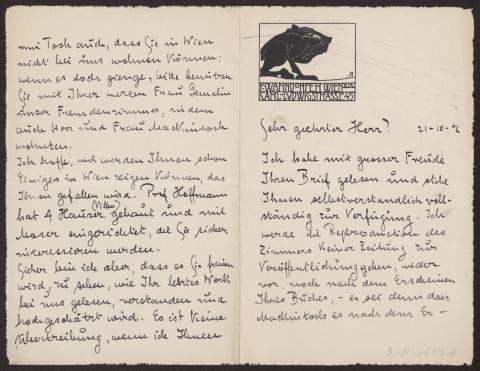 F. WÄRNDORFER WIEN XIX
CARL-LUDWIGSTRASSE 45
Sehr geehrter Herr! 21-10-02
Ich habe mit grosser Freude
Ihren Brief gelesen und stehe
Ihnen selbstverständlich voll-
ständig zur Verfügung. Ich
werde die Reproduction des
Zimmers keiner Zeitung zur
Veröffentlichung geben, weder
vor, noch nach dem Erscheinen
Ihres Buches, – es sei denn dass
Mackintosh es nach dem Er-
mir auch, dass Sie in Wien
nicht bei uns wohnen können;
wenn es doch gienge, bitte benützen
Sie mit Ihrer werten Frau Gemalin
unser Fremdenzimmer, in dem
auch Herr und Frau Mackintosh
wohnten.
Ich hoffe, wir werden Ihnen schon
Einiges in Wien zeigen können, das
Ihnen gefallen wird. Prof Hoffmann
hat 4 Häuser (Villen) gebaut und mit
Moser eingerichtet, die Sie sicher
interessieren werden.
Sicher bin ich aber, dass es Sie freuen
wird, zu sehen, wie Ihr letztes Werk
bei uns gelesen, verstanden und
hochgeschätzt wird. Es ist keine
Übertreibung, wenn ich Ihnen